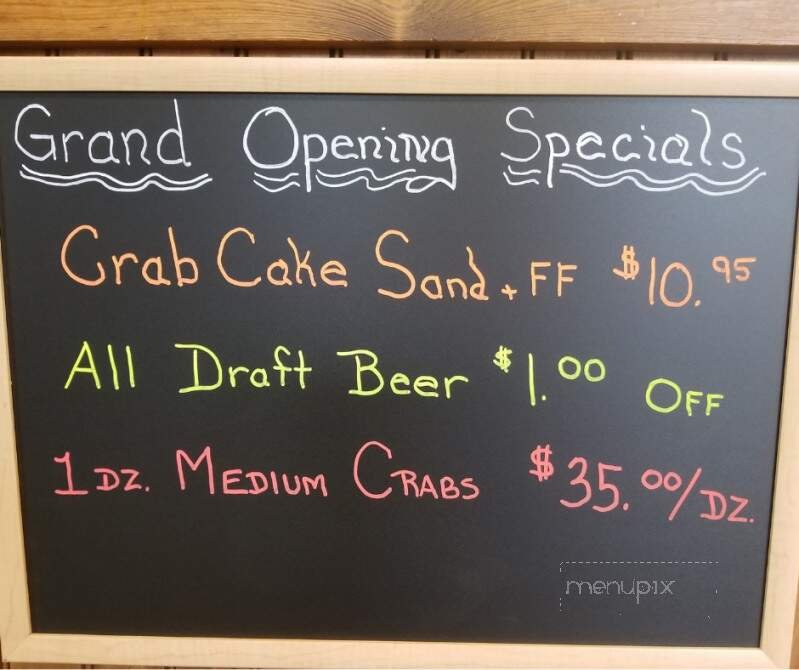 Grand Opening Specials
Crab Cake Sand. + FF $10.95
All Draft Beer $1.00 OFF
1 DZ. MEDIUM CRABS $35.00/DZ.
menupix